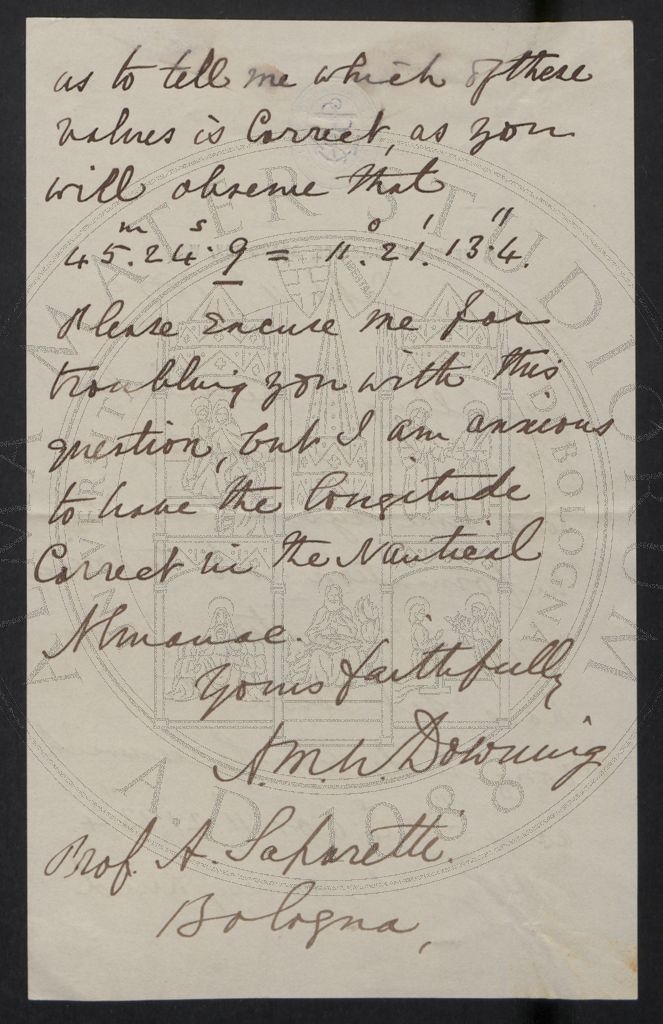 as to tell me which of these
values is Correct, as you
will observe that
45.ᵐ24.ˢ9 = 11.°21.′13.″4.
Please excuse me for
troubling you with this
question, but I am anxious
to have the longitude
Correct in the Nautical
Almanac.
Yours faithfully
A.M.W. Downing
Prof. A. Saporetti.
Bologna,
ALMA MATER STUDIORUM
A.D. 1088